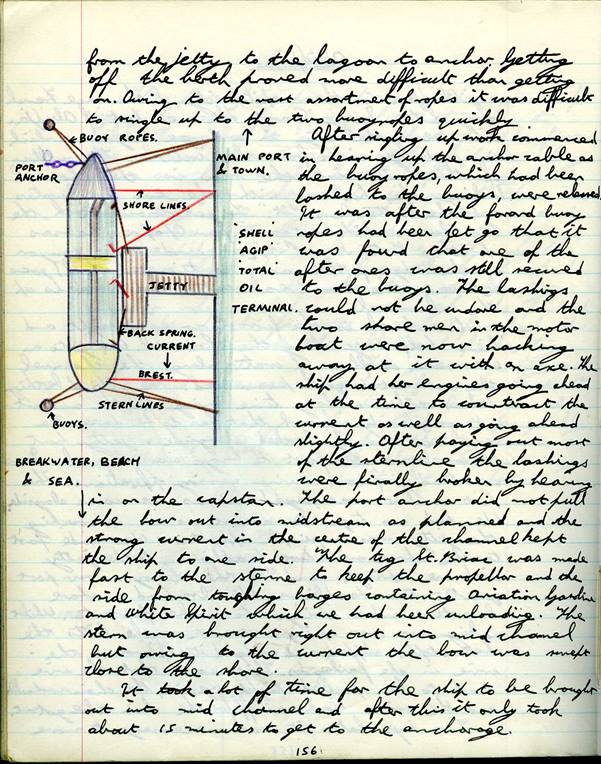 from the jetty to the lagoon to anchor. Getting
off the berth proved more difficult than getting
on. Owing to the vast assortment of ropes it was difficult
to single up to the two buoyropes quickly.
BUOY ROPES.
PORT
ANCHOR
MAIN PORT
& TOWN.
SHORE LINES.
'SHELL
'AGIP'
TOTAL'
OIL
TERMINAL.
JETTY
BACK SPRING.
CURRENT
BREST.
STERN LINES
BUOYS.
BREAKWATER, BEACH
& SEA.
After singling up work commenced
in heaving up the anchor cable as
the buoy ropes, which had been
lashed to the buoys, were released.
It was after the forard buoy
ropes had been let go that it
was found that one of the
after ones was still secured
to the buoys. The lashings
could not be undone and the
two shore men in the motor
boat were now hacking
away at it with an axe. The
ship had her engines going ahead
at the time to countract the
current as well as going ahead
slightly. After paying out most
of the sternline the lashings
were finally broken by heaving
in on the capstan. The port anchor did not pull
the bow out into midstream as planned and the
strong current in the centre of the channel kept
the ship to one side. The tug St. Briac was made
fast to the sterne to keep the propellor and the
side from touching barges containing Aviation Gasoline
and White Spirit which we had been unloading. The
stern was brought right out into mid channel
but owing to the current the bow was swept
close to the shore.
It took a lot of time for the ship to be brought
out into mid channel and after this it only took
about 15 minutes to get to the anchorage.
156